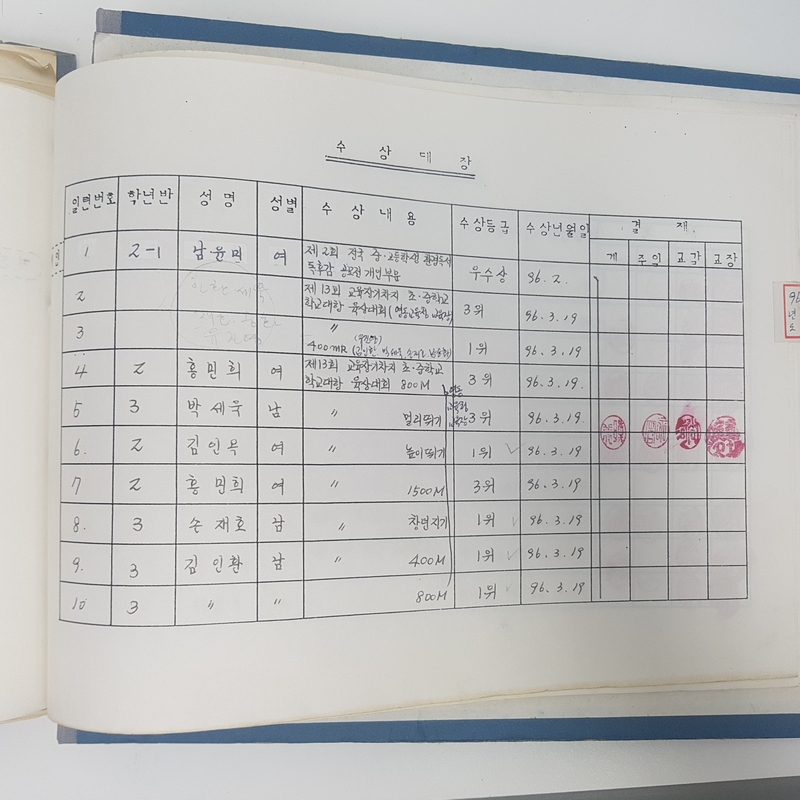 수 상 대 장
일련번호 학년반 성명 성별 수상내용 수상등급 수상년월일 결재
계 주임 교감 교장
1 2-1 남윤미 여 제2회 전국 중·고등학생 환경도서 독후감 공모전 개인부문 우수상 96. 2.
2 제13회 교육장기차지 초·중학교 학교대항 육상대회 (영동교육청 교육장) 3위 96. 3. 19
3 〃 400mR 1위 96. 3. 19
4 2 홍민희 여 제13회 교육장기차지 초·중학교 학교대항 육상대회 800M 3위 96. 3. 19
5 3 박세욱 남 〃 멀리뛰기 3위 96. 3. 19
6. 2 김인옥 여 〃 높이뛰기 1위 96. 3. 19
7 2 홍민희 여 〃 1500M 3위 96. 3. 19
8. 3 손재호 남 〃 창던지기 1위 96. 3. 19
9. 3 김인환 남 〃 400M 1위 96. 3. 19
10 3 〃 〃 800M 1위 96. 3. 19
96
년
도